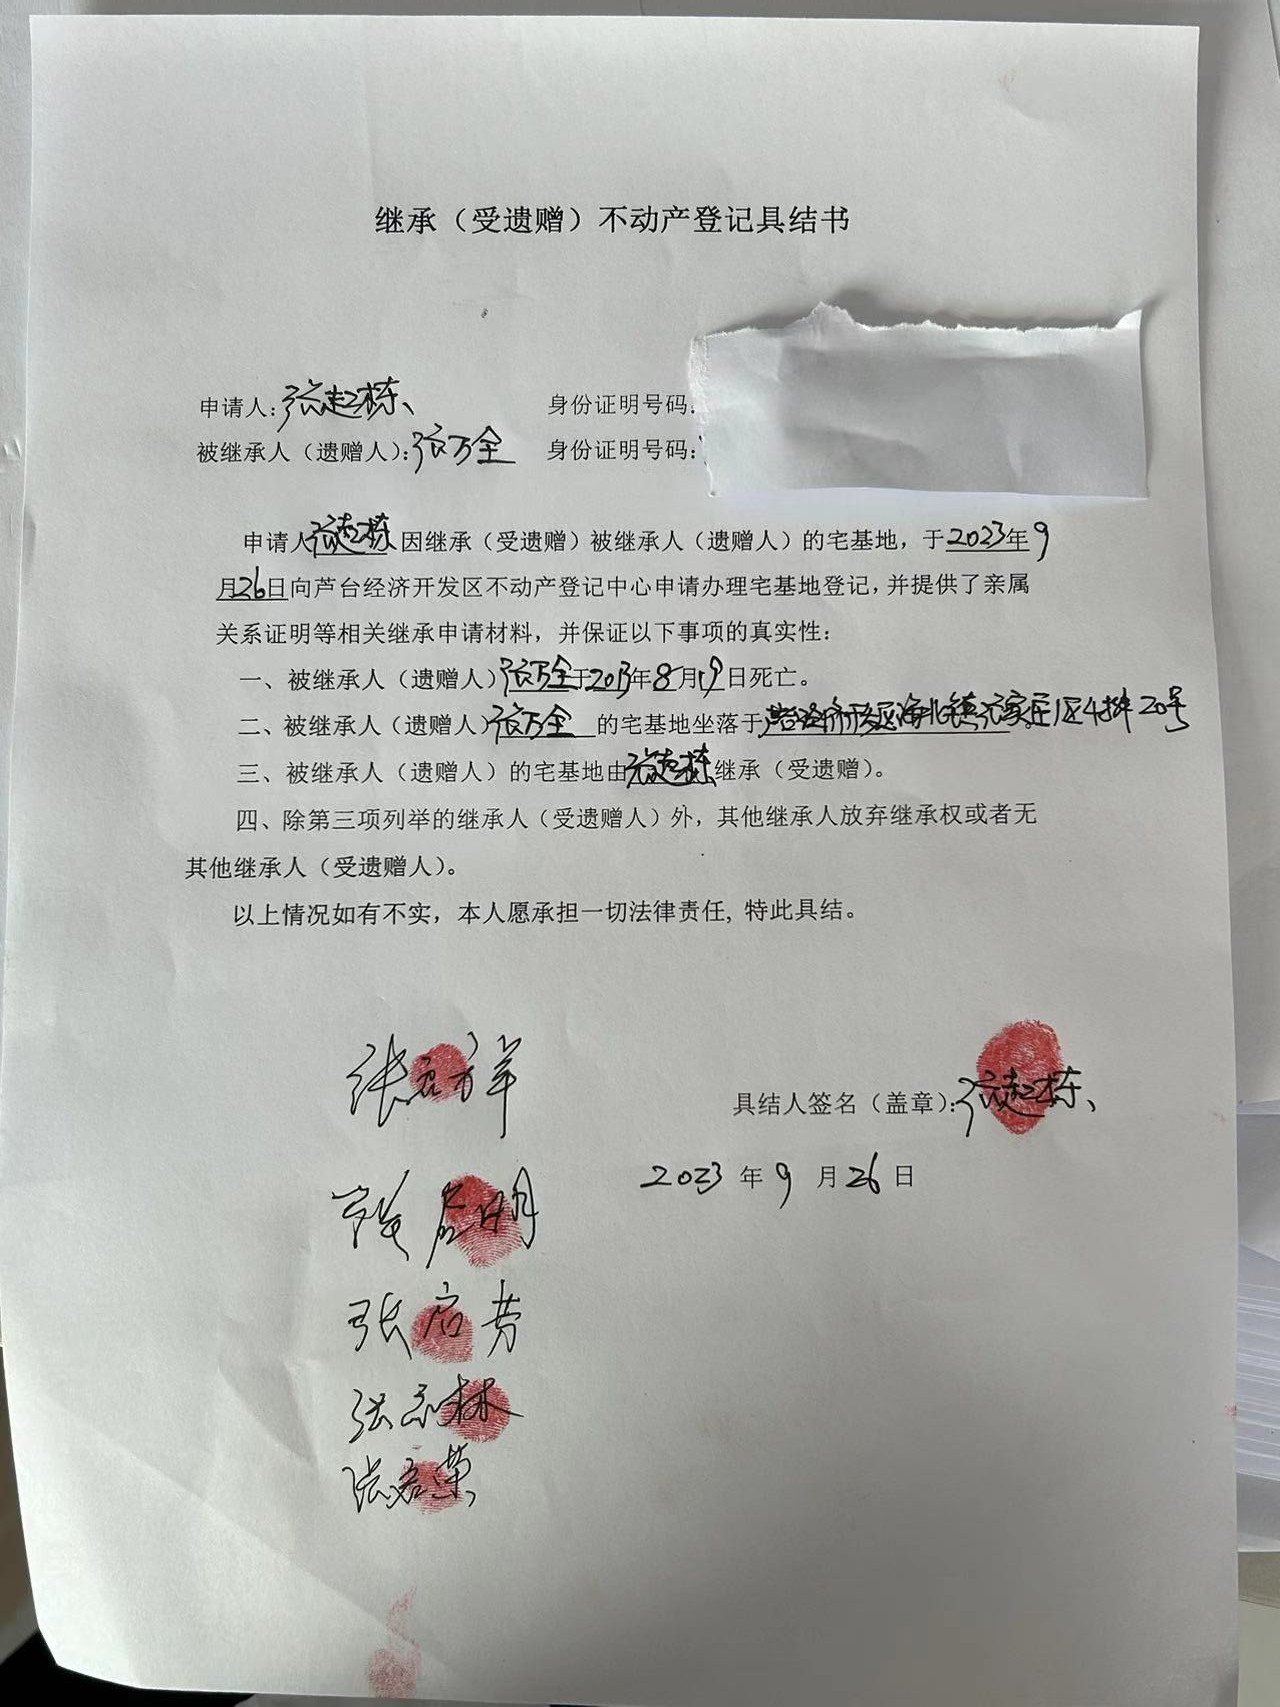 继承（受遗赠）不动产登记具结书
申请人：张起栋、 身份证明号码：
被继承人（遗赠人）：张万全 身份证明号码：
申请人张起栋因继承（受遗赠）被继承人（遗赠人）的宅基地，于2023年9
月26日向芦台经济开发区不动产登记中心申请办理宅基地登记，并提供了亲属
关系证明等相关继承申请材料，并保证以下事项的真实性：
一、被继承人（遗赠人）张万全于2013年8月19日死亡。
二、被继承人（遗赠人）张万全的宅基地坐落于芦台经济开发区海北镇 家庄1区4排20号
三、被继承人（遗赠人）的宅基地由张起栋继承（受遗赠）。
四、除第三项列举的继承人（受遗赠人）外，其他继承人放弃继承权或者无
其他继承人（受遗赠人）。
以上情况如有不实，本人愿承担一切法律责任，特此具结。
张 祥
具结人签名（盖章）：张起栋、
2023 年 9 月 26 日
启明
张启芳
张 林
张启荣